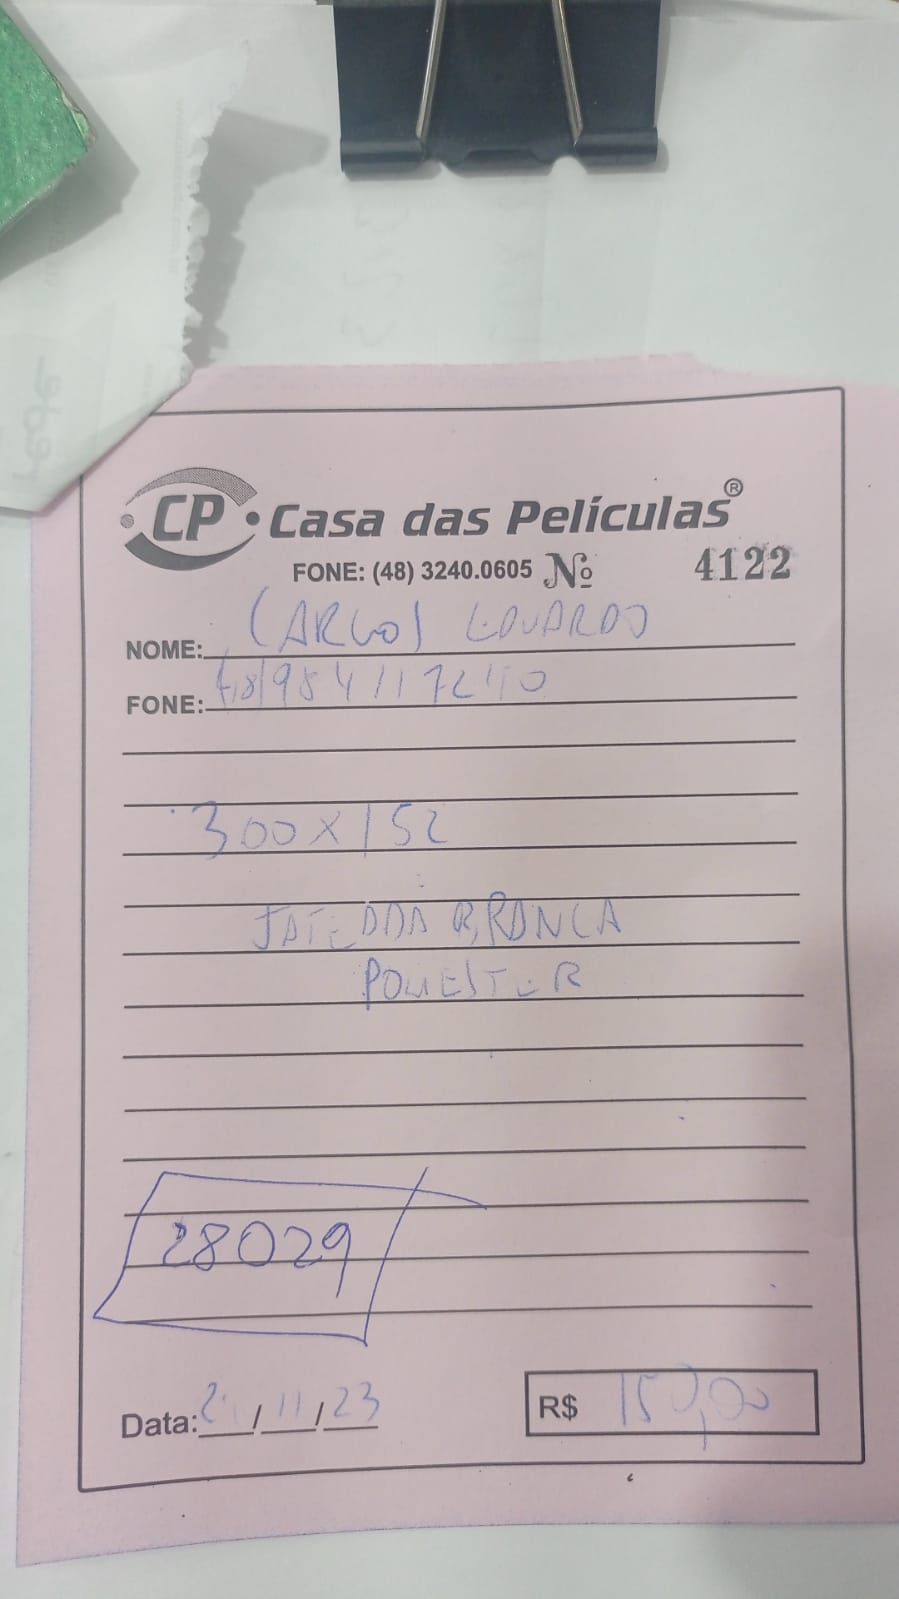 CP Casa das Películas®
FONE: (48) 3240.0605 Nº 4122
NOME: CARLOS EDUARDO
FONE:
300 X 152
JATEADA BRANCA
POLIESTER
28029
Data: / 11 / 23
R$ 150,00
rede